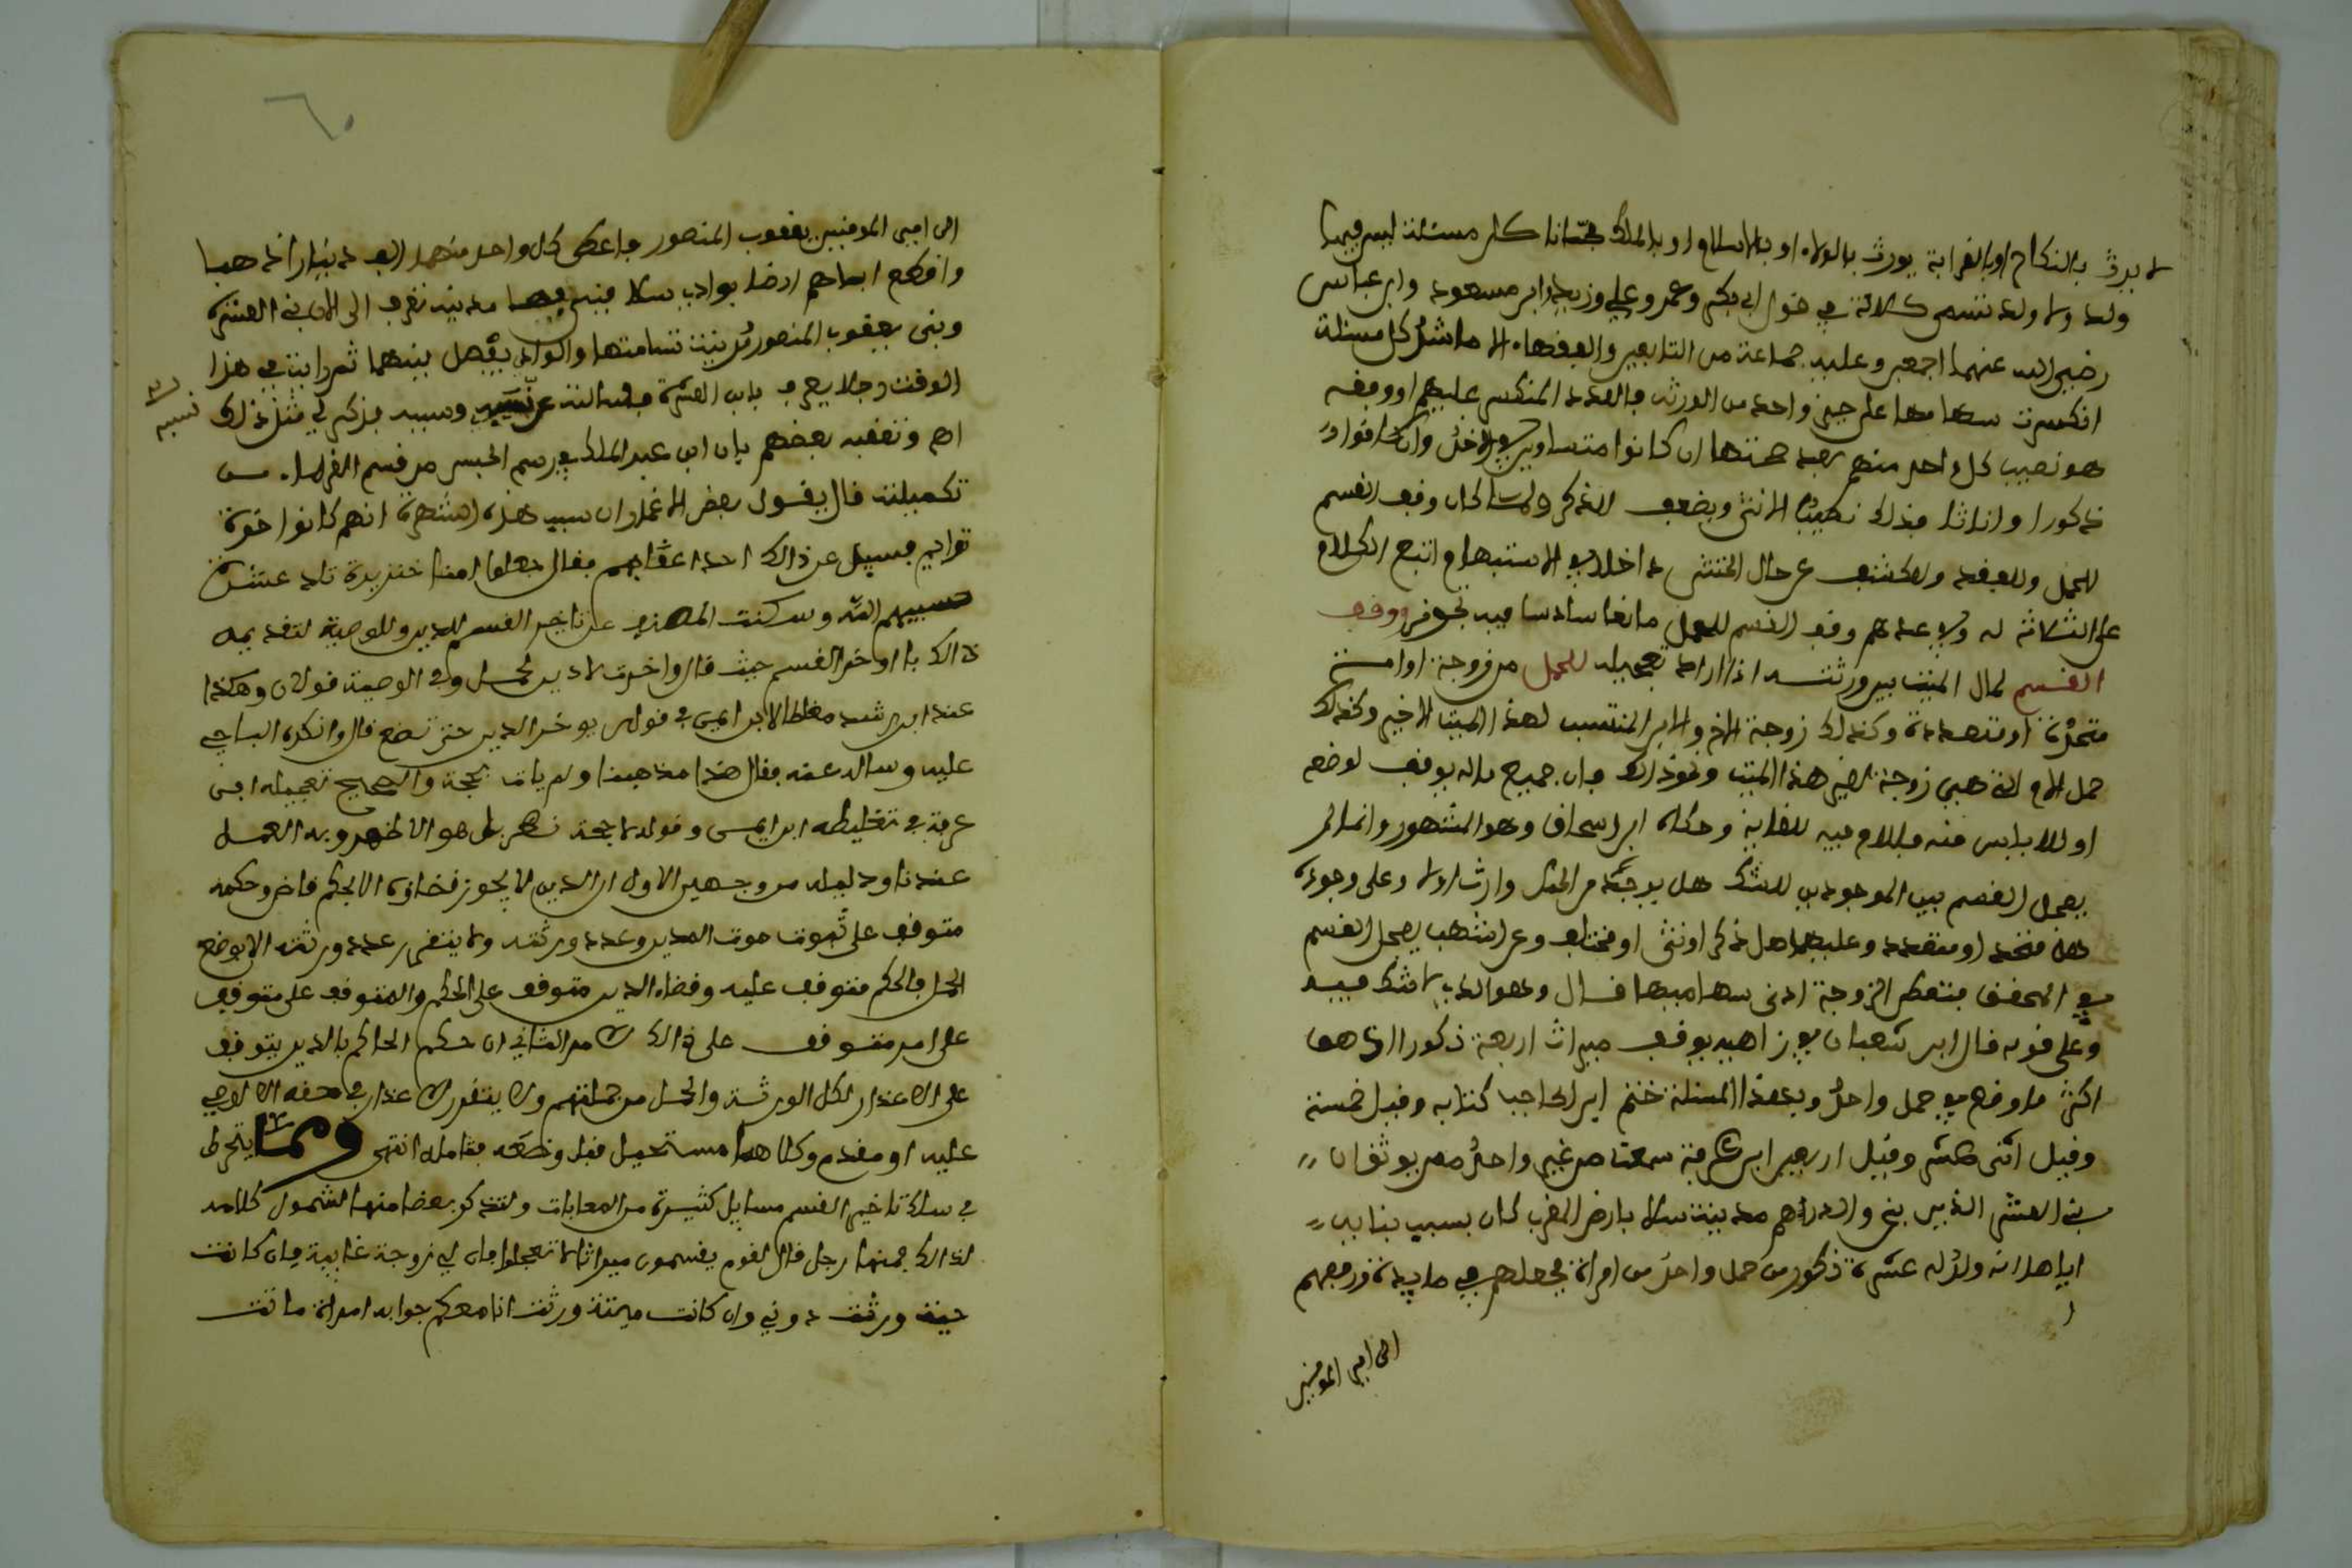 لا يرث بالنكاح او بالقرابة يورث بالولاء او بالاسلام او بالملك كل مسئلة ليس فيها
ولد ولا والد تسمى كلالة في قول ابي بكر وعمر وعلي وزيد وابن مسعود وابن عباس
رضي الله عنهما اجمعين وعليه جماعة من التابعين والفقهاء كل مسئلة
انكسرت سهامها على حيز واحد من الورثة فالعدد المنكسر عليهم او وفقه
هو نصيب كل واحد منهم بعد صحتها ان كانوا متساوين في الاخذ وان كانوا
ذكورا واناثا فذلك نصيب الانثى وبضعف للذكر ولما كان وقف القسم
للحمل وللفقد وللكشف عن حال الخنثى داخلا في الاستبهام اتبع الكلام
على الثلاثة له ولا بعدهم وقف القسم للحمل مانعا سادسا فيه تجوز ووقف
القسم لمال الميت بين ورثته اذا اراد تعجيله للحمل من زوجة او امة
متحدة او متعددة وكذلك زوجة الاخ والابن المنتسب لهذا الميت الاخير وكذلك
حمل الام التي هي زوجة لغير هذا الميت ونحو ذلك فان جميع ماله يوقف لوضعه
او للاياس منه فاللام فيه للغاية وحكاه ابن اسحاق وهو المشهور وانما لم
يعجل القسم بين الموجودين للشك هل يوجد من الحمل وارث او لا وعلى وجوده
هل متحد او متعدد وعليهما هل ذكر او انثى او مختلف وعن اشهب يعجل القسم
في المحقق فتعطى الزوجة ادنى سهاميها قال وهو الذي لا شك فيه
وعلى قوله قال ابن شعبان يوقف ميراث اربعة ذكور اذ هو
اكثر ما وقع في حمل واحد وبهذا المسئلة ختم ابن الحاجب كتابه وقيل خمسة
وقيل اثنى عشر وقيل اربعين ابن عرفة سمعت من غير واحد ممن يوثق ان
بني العشرة الذين بنى والدهم مدينة سلا بارض المغرب كان بسبب بنائه
اياها انه ولد له عشرة ذكور من حمل واحد من امراة فجعلهم في مائدة ورفعهم
الى امير المومنين
٦٠
الى امير المومنين يعقوب المنصور فاعطى كل واحد منهم الف دينار ذهبا
واقطع اباهم ارضا بوادي سلا فبنى بها مدينة تعرف الى الان بني العشرة
وبنى يعقوب المنصور مدينة تسامتها والوادي يفصل بينهما ثم رايت في هذا
الوقت رجلا يعرف بابن العشرة فسالته عن نسبه وسببه فذكر لي مثل ذلك
نسبه
اه وتعقبه بعضهم بان ابن عبد الملك في رسم الحبس من قسم الغرباء من
تكميلته قال يقول بعض الاغمار ان سبب هذه الشهرة انهم كانوا اخوة
توايم فسيل عن ذالك احد اعقابهم فقال جعلوا امنا خنزيرة تلد عشرة
حسبيهم الله وسكت المص عن تاخير القسم للدين وللوصية لتقديمه
ذالك باواخر القسم حيث قال واخرت لا دين لحمل وفي الوصية قولان وهكذا
عند ابن رشد مغلطا لابن ايمن في قوله يوخر الدين حتى تضع قال وانكره الباجي
عليه وساله عنه فقال هذا مذهبنا ولم يات بحجة والصحيح تعجيله ابن
عرفة في تغليطه ابن ايمن وقوله لا حجة نظر بل هو الاظهر وبه العمل
عندنا ودليله من وجهين الاول ان الدين لا يجوز قضاؤه الا بحكم قاض وحكمه
متوقف على ثبوت موت المدين وعدد ورثته ولا يتقرر عدد ورثته الا بوضع
الحمل فالحكم متوقف عليه وقضاء الدين متوقف على الحكم والمتوقف على متوقف
على امر متوقف على ذالك الامر الثاني ان حكم الحاكم بالدين يتوقف
على الاعذار لكل الورثة والحمل من جملتهم ولا يتقرر الاعذار في حقه الا لوصي
عليه او مقدم وكلاهما مستحيل قبل وضعه فتامله انتهى ومما ينخرط
في سلك تاخير القسم مسايل كثيرة من المعايات ولنذكر بعضا منها لشمول كلامه
لذالك فمنها رجل قال لقوم يقسمون ميراثا لا تعجلوا فان لي زوجة غايبة فان كانت
حية ورثت دوني وان كانت ميتة ورثت انا معكم جوابه امراة ماتت